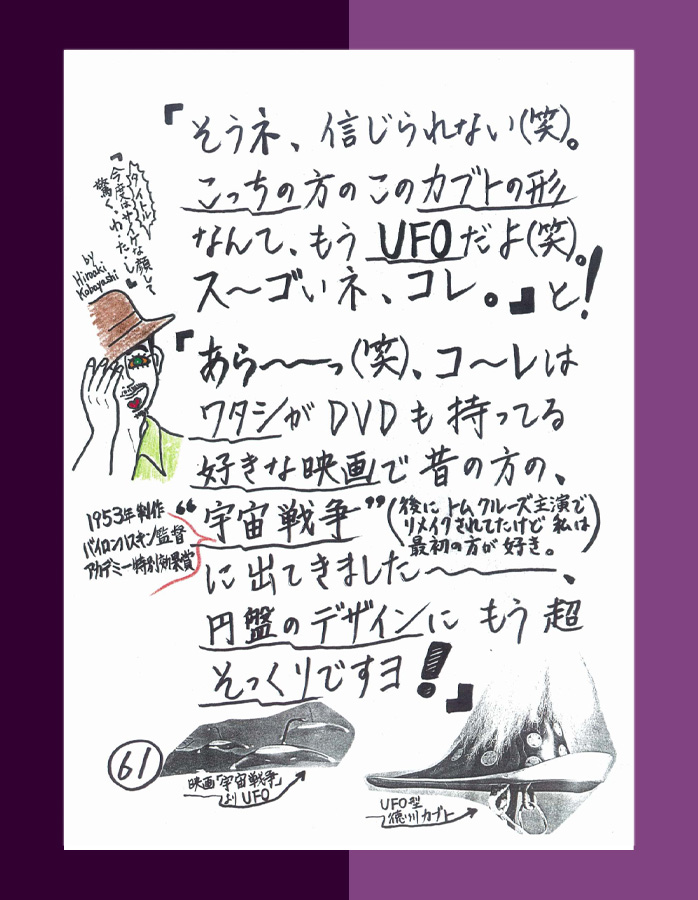 『そうネ、信じられない(笑)。
こっちの方のこのカブトの形
なんて、もう UFOだよ(笑)。
ス〜ゴいネ、コレ。』と!
タイトル
「今度はサイケな顔して
驚く、わ・た・し」
by
Hiroaki
Kobayashi
『あら〜〜っ(笑)、コ〜レは
ワタシがDVDも持ってる
好きな映画で昔の方の、
“宇宙戦争”
(後にトムクルーズ主演で
リメイクされてたけど私は
最初の方が好き。)
1953年制作
バイロンハスキン監督
アカデミー特別効果賞
に出てきました〜〜、
円盤のデザインにもう超
そっくりですヨ!』
61
映画「宇宙戦争」
よりUFO
UFO型
徳川カブト